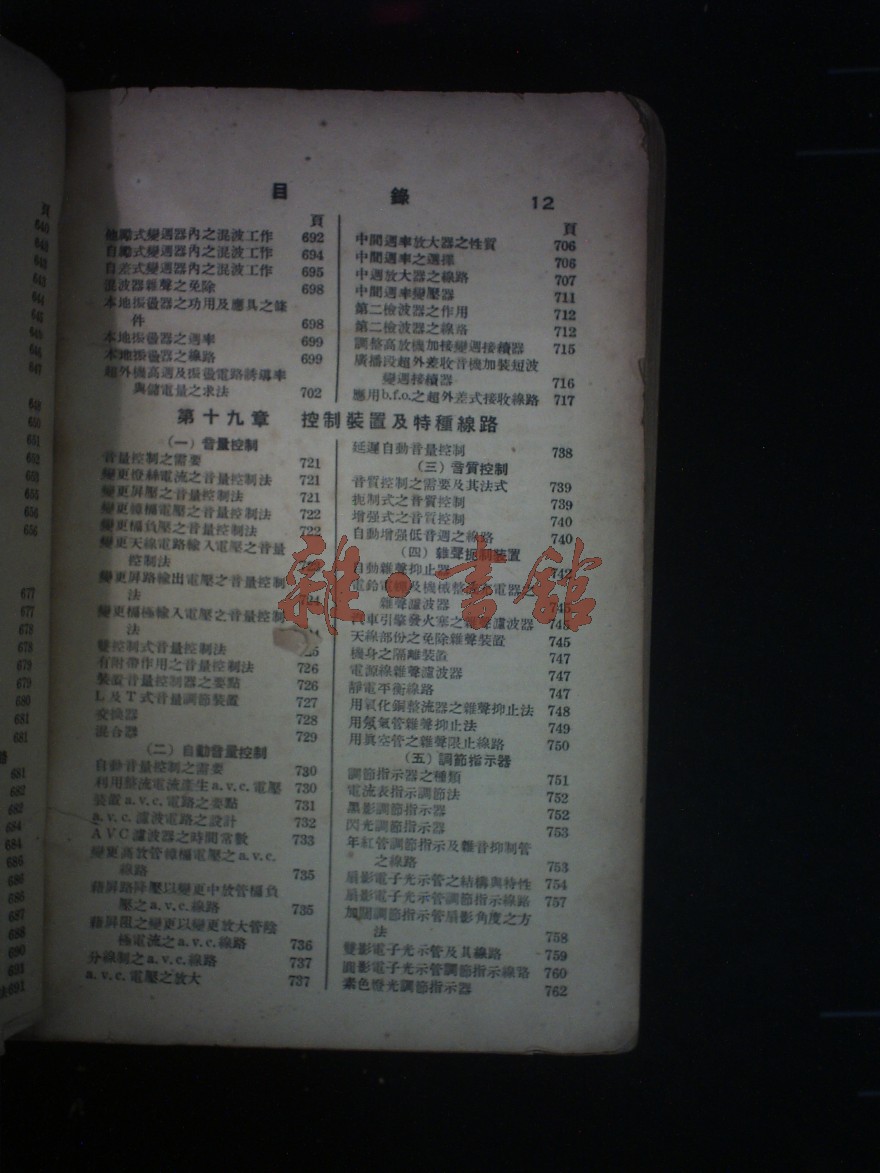 目 錄 12
頁
式變週器內之混波工作 692
自勵式變週器內之混波工作 694
自差式變週器內之混波工作 695
混波器雜聲之免除 698
本地振盪器之功用及應具之條
件 698
本地振盪器之週率 699
本地振盪器之線路 699
超外機高週及振盪電路誘導率
與儲電量之求法 702
頁
中間週率放大器之性質 706
中間週率之選擇 706
中週放大器之線路 707
中間週率變壓器 711
第二檢波器之作用 712
第二檢波器之線路 712
調整高放機加接變週接續器 715
廣播段超外差收音機加裝短波
變週接續器 716
應用b.f.o.之超外差式接收線路 717
第十九章 控制裝置及特種線路
(一)音量控制
音量控制之需要 721
變更燈絲電流之音量控制法 721
變更屏壓之音量控制法 721
變更簾柵電壓之音量控制法 722
變更柵負壓之音量控制法 722
變更天線電路輸入電壓之音量
控制法 723
變更屏路輸出電壓之音量控制
法 724
變更柵極輸入電壓之音量控制
法
雙控制式音量控制法
有附帶作用之音量控制法 726
裝置音量控制器之要點 726
L及T式音量調節裝置 727
交換器 728
混合器 729
(二)自動音量控制
自動音量控制之需要 730
利用整流電流產生a.v.c.電壓 730
裝置a.v.c.電路之要點 731
a.v.c.濾波電路之設計 732
AVC濾波器之時間常數 733
變更高放管簾柵電壓之a.v.c.
線路 735
藉屏路降壓以變更中放管柵負
壓之a.v.c.線路 735
藉屏阻之變更以變更放大管陰
極電流之a.v.c.線路 736
分線制之a.v.c.線路 737
a.v.c.電壓之放大 737
延遲自動音量控制 738
(三)音質控制
音質控制之需要及其法式 739
扼制式之音質控制 739
增强式之音質控制 740
自動增强低音週之線路 740
(四)雜聲扼制裝置
自動雜聲抑止器 742
電鈴電 及機械整流充電器之
雜聲濾波器 745
汽車引擎發火塞之雜聲濾波器 745
天線部份之免除雜聲裝置 745
機身之隔離裝置 747
電源線雜聲濾波器 747
靜電平衡線路 747
用氧化銅整流器之雜聲抑止法 748
用氖氣管雜聲抑止法 749
用眞空管之雜聲限止線路 750
(五)調節指示器
調節指示器之種類 751
電流表指示調節法 752
黑影調節指示器 752
閃光調節指示器 753
年紅管調節指示及雜音抑制管
之線路 753
扇影電子光示管之結構與特性 754
扇影電子光示管調節指示線路 757
加闊調節指示管扇影角度之方
法 758
雙影電子光示管及其線路 759
圓影電子光示管調節指示線路 760
素色燈光調節指示器 762
頁
640
647
656
677
677
678
678
679
679
680
681
681
681
682
682
684
684
685
686
687
688
690
691
法691
雜·書館